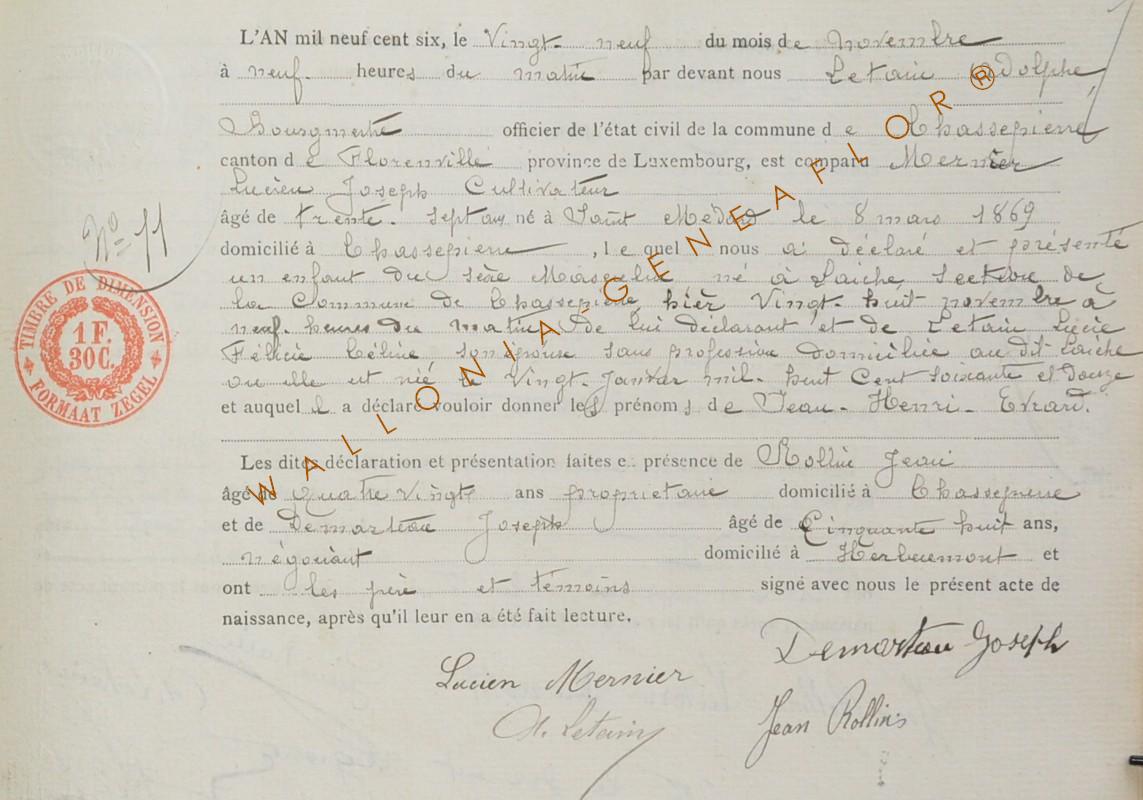 L'AN mil neuf cent six, le Vingt-neuf du mois de Novembre
à neuf heures du matin par devant nous Letain Adolphe,
Bourgmestre officier de l'état civil de la commune de Chassepierre
canton de Florenville province de Luxembourg, est comparu Mernier
Lucien Joseph Cultivateur
âgé de trente-sept ans né à Saint Medard le 8 mars 1869
domicilié à Chassepierre, lequel nous a déclaré et présenté
un enfant du sexe Masculin né à Laiche, section de
la Commune de Chassepierre, hier Vingt-huit novembre à
neuf heures du matin de lui déclarant et de Letain Lucie
Félicie Céline son épouse sans profession domiciliée au dit Laiche
ou elle est née le Vingt Janvier mil-huit Cent soixante et douze
et auquel il a déclaré vouloir donner les prénoms de Jean-Henri-Evrard.
Les dites déclaration et présentation faites en présence de Rollin Jean
âgé de quatre Vingts ans propriétaire domicilié à Chassepierre
et de Demarteau Joseph âgé de Cinquante huit ans,
négociant domicilié à Herbeumont et
ont les père et témoins signé avec nous le présent acte de
naissance, après qu'il leur en a été fait lecture.
N° 11
TIMBRE DE DIMENSION
1 F.
30C.
FORMAAT ZEGEL
Demarteau Joseph
Lucien Mernier
A. Letain
Jean Rollin
WALLONIA-GENEAFLOR®